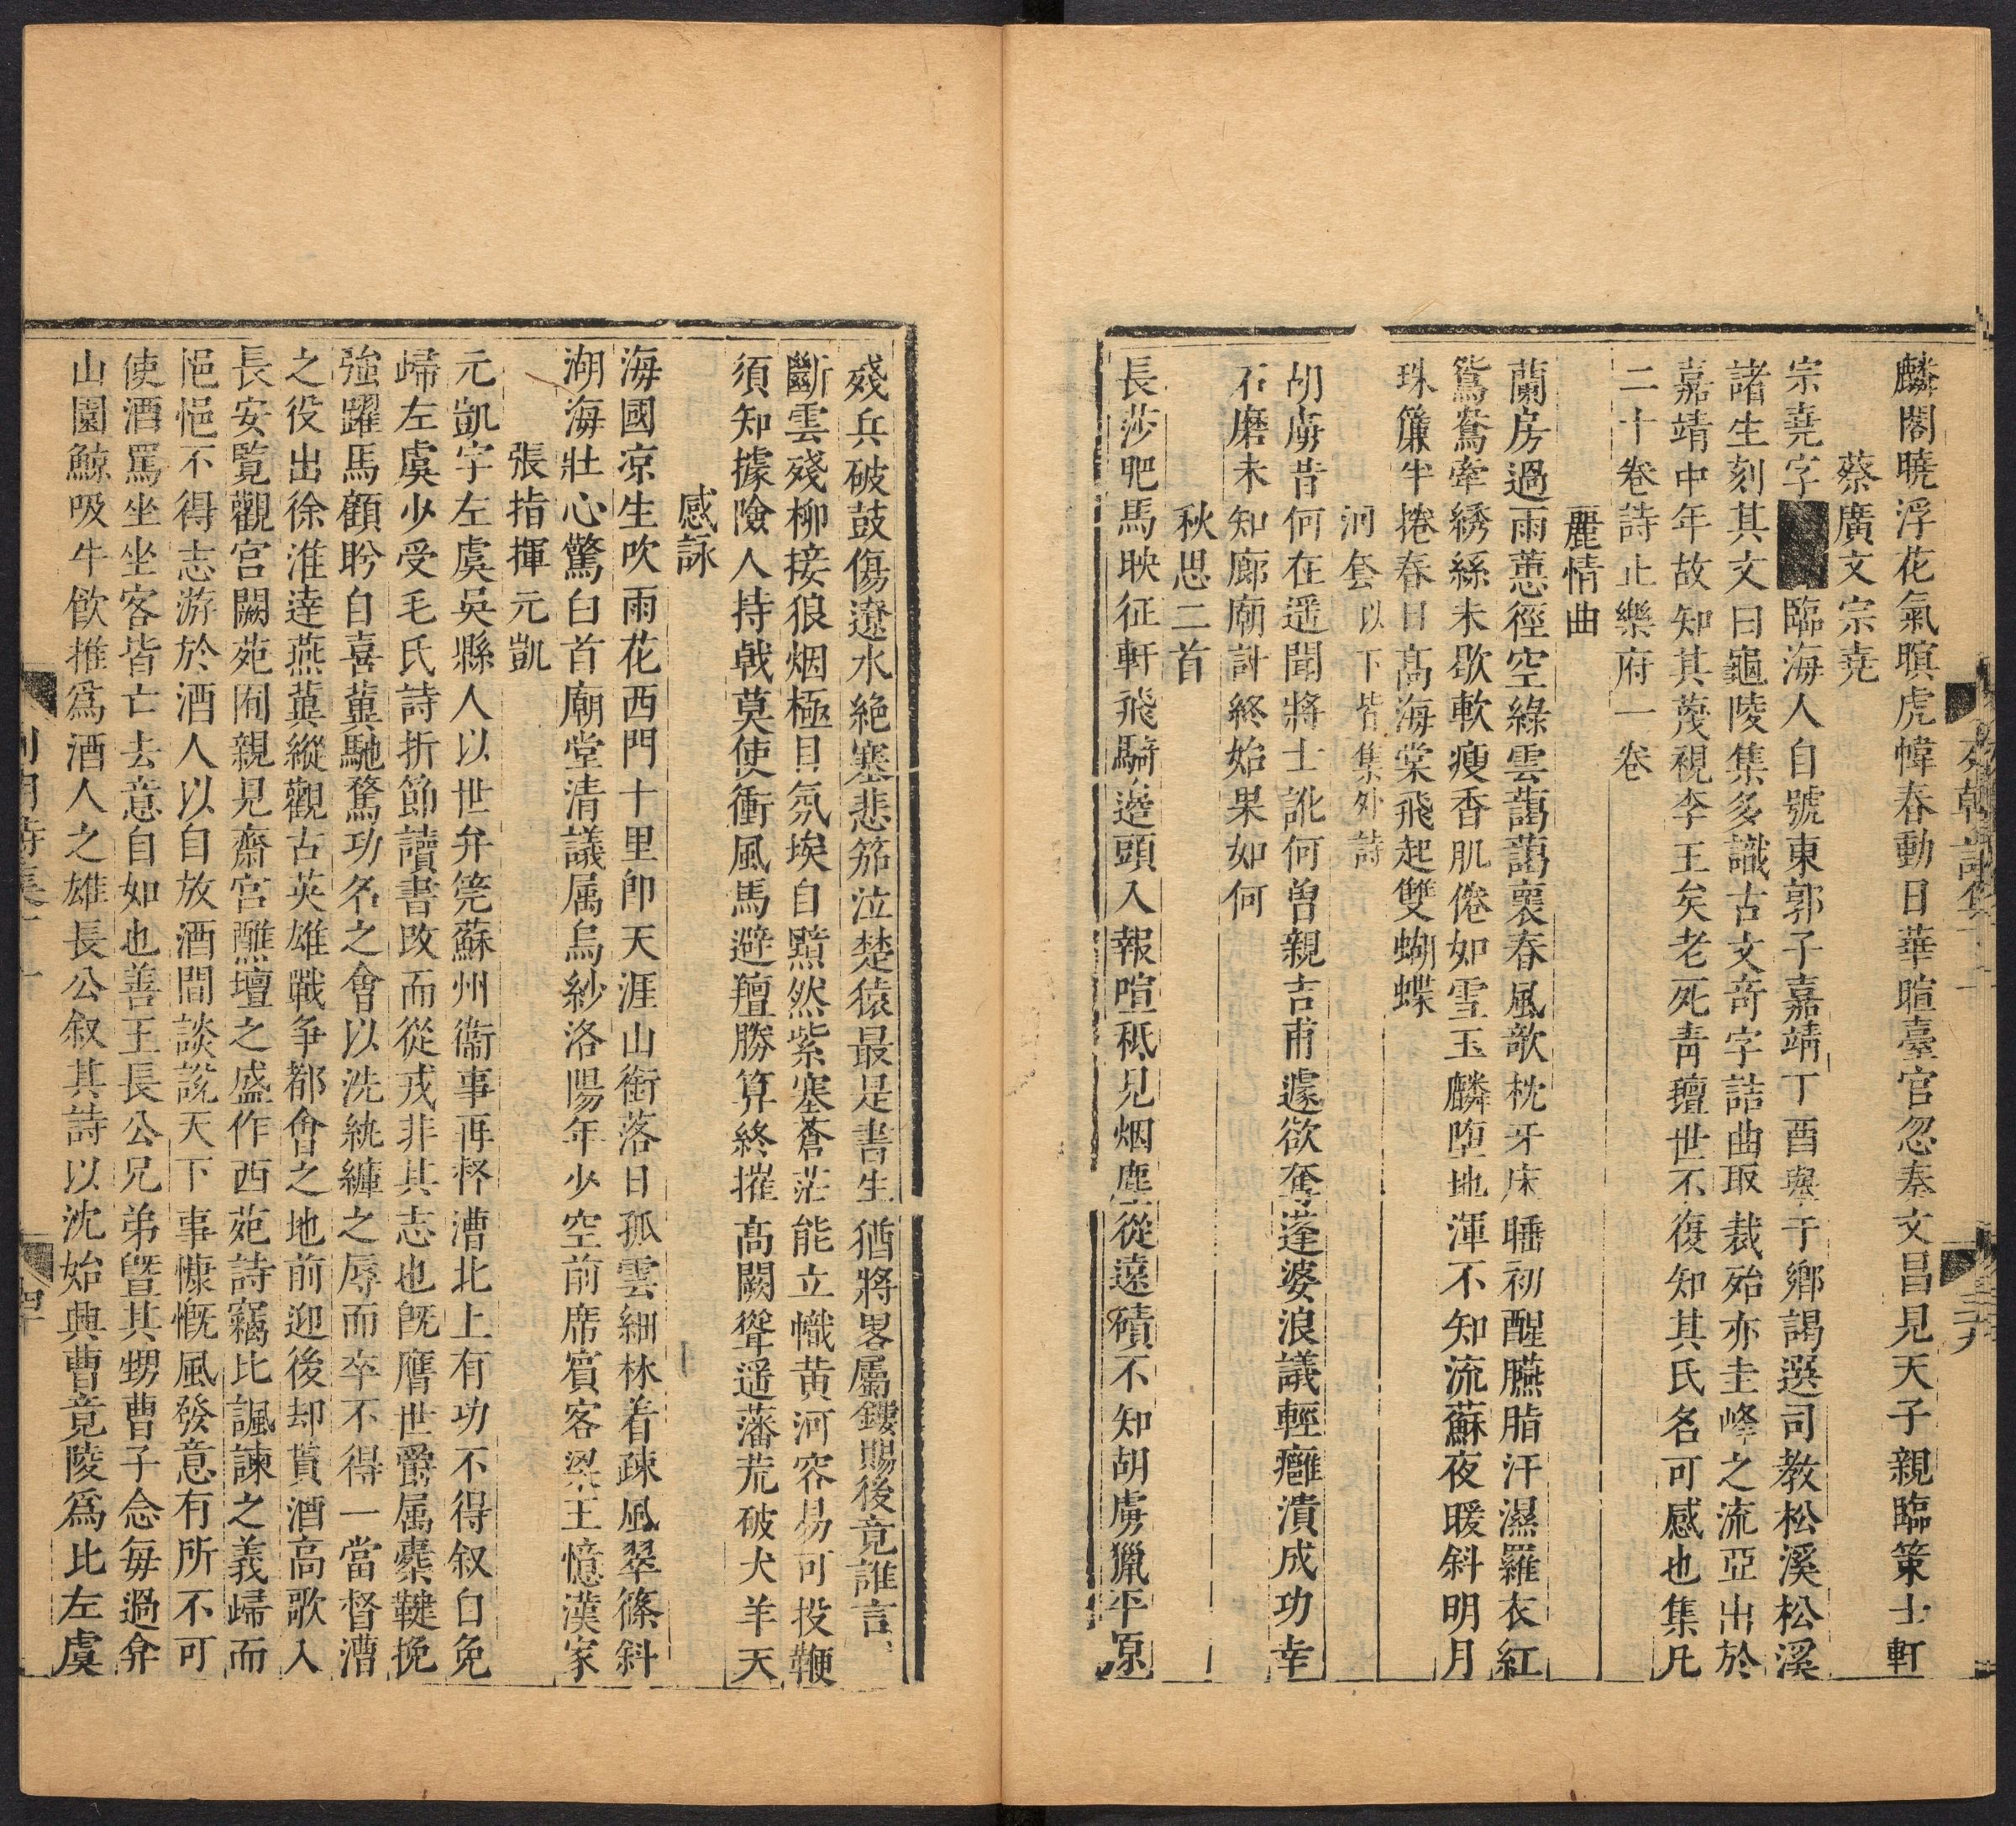 麟閣曉浮花氣暝虎幃春動日華暄臺官忽奏文昌見天子親臨策士軒
蔡廣文宗堯
宗堯字臨海人自號東郭子嘉靖丁酉舉于鄉謁選司教松溪松溪
諸生刻其文曰龜陵集多識古文奇字詰曲取裁殆亦圭峰之流亞出於
嘉靖中年故知其蔑視李王矣老死青氊世不復知其氏名可感也集凡
二十卷詩止樂府一卷
麗情曲
蘭房過雨蕙徑空綠雲藹藹裊春風歌枕牙床睡初醒臙脂汗濕羅衣紅
鴛鴦牽綉絲未歇軟瘦香肌倦如雪玉麟墮地渾不知流蘇夜暖斜明月
珠簾半捲春日高海棠飛起雙蝴蝶
河套以下皆集外詩
胡虜昔何在遥聞將士訛何曾親吉甫遽欲奪蓬婆浪議輕癰潰成功幸
石磨未知廊廟計終始果如何
秋思二首
長莎肥馬映征軒飛騎邊頭入報喧秪見烟塵從遠磧不知胡虜獵平原
殘兵破鼓傷遼水絶塞悲笳泣楚猿最是書生猶將畧屬鏤賜後竟誰言
斷雲殘柳接狼烟極目氛埃自黯然紫塞蒼茫能立幟黄河容易可投鞭
須知據險人持戟莫使衝風馬避羶勝算終摧高闕聳遥藩荒破犬羊天
感詠
海國凉生吹雨花西門十里即天涯山銜落日孤雲細林着疎風翠篠斜
湖海壯心驚白首廟堂清議属烏紗洛陽年少空前席賓客梁王憶漢家
張指揮元凱
元凱字左虞吳縣人以世弁筦蘇州衞事再督漕北上有功不得叙自免
歸左虞少受毛氏詩折節讀書改而從戎非其志也旣膺世爵属櫜鞬挽
強躍馬顧眄自喜冀馳騖功名之會以洗紈褲之辱而卒不得一當督漕
之役出徐淮逹燕冀縱觀古英雄戰争都會之地前迎後却貰酒高歌入
長安覽觀宫闕苑囿親見齋宫醮壇之盛作西苑詩竊比諷諫之義歸而
悒悒不得志游於酒人以自放酒間談說天下事慷慨風發意有所不可
使酒罵坐坐客皆亡去意自如也善王長公兄弟曁其甥曹子念每過弇
山園鯨吸牛飮推爲酒人之雄長公叙其詩以沈始興曹竟陵爲比左虞